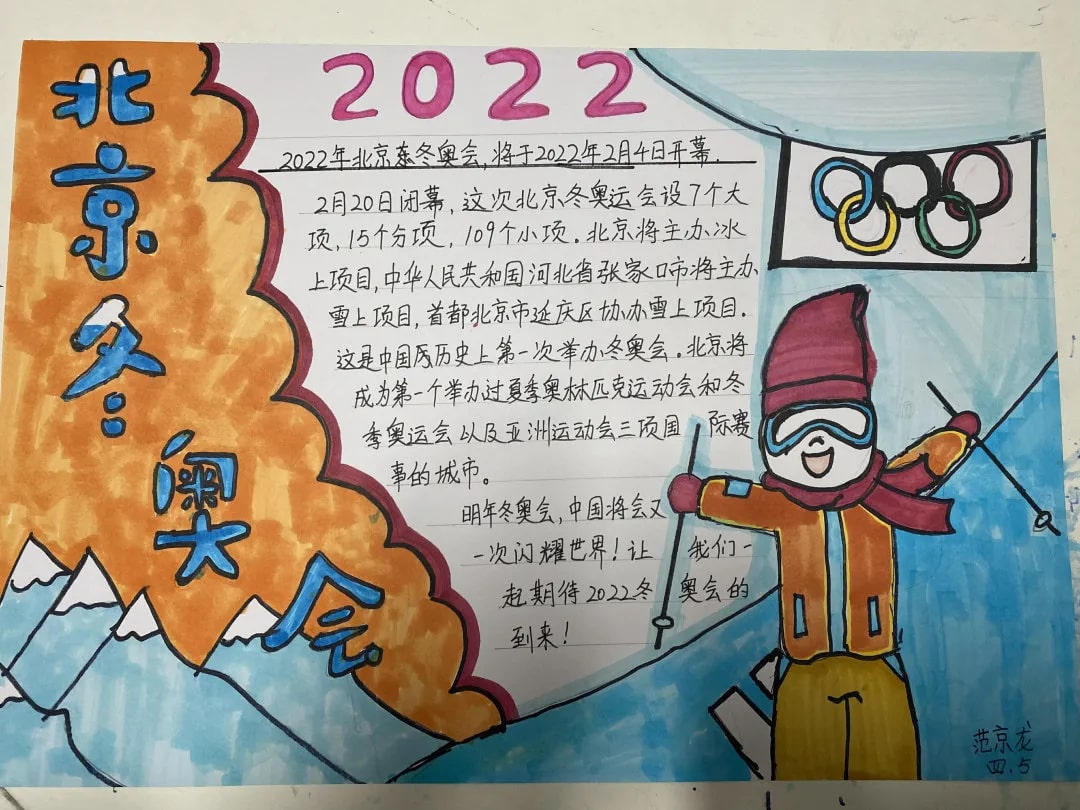 北京冬奥会
2022
2022年北京冬奥会，将于2022年2月4日开幕.
2月20日闭幕，这次北京冬奥运会设7个大
项，15个分项，109个小项。北京将主办冰
上项目，中华人民共和国河北省张家口市将主办
雪上项目，首都北京市延庆区协办雪上项目.
这是中国历史上第一次举办冬奥会。北京将
成为第一个举办过夏季奥林匹克运动会和冬
季奥运会以及亚洲运动会三项国际赛
事的城市。
明年冬奥会，中国将会又
一次闪耀世界！让我们一
起期待2022冬奥会的
到来！
范京龙
四.5